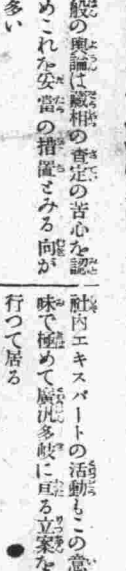 般の輿論は藏相の査定の苦心を認
めこれを妥當の措置とみる向が
多い
社内エキスパートの活動もこの意
味で極めて廣汎多岐に亘る立案を
行つて居る